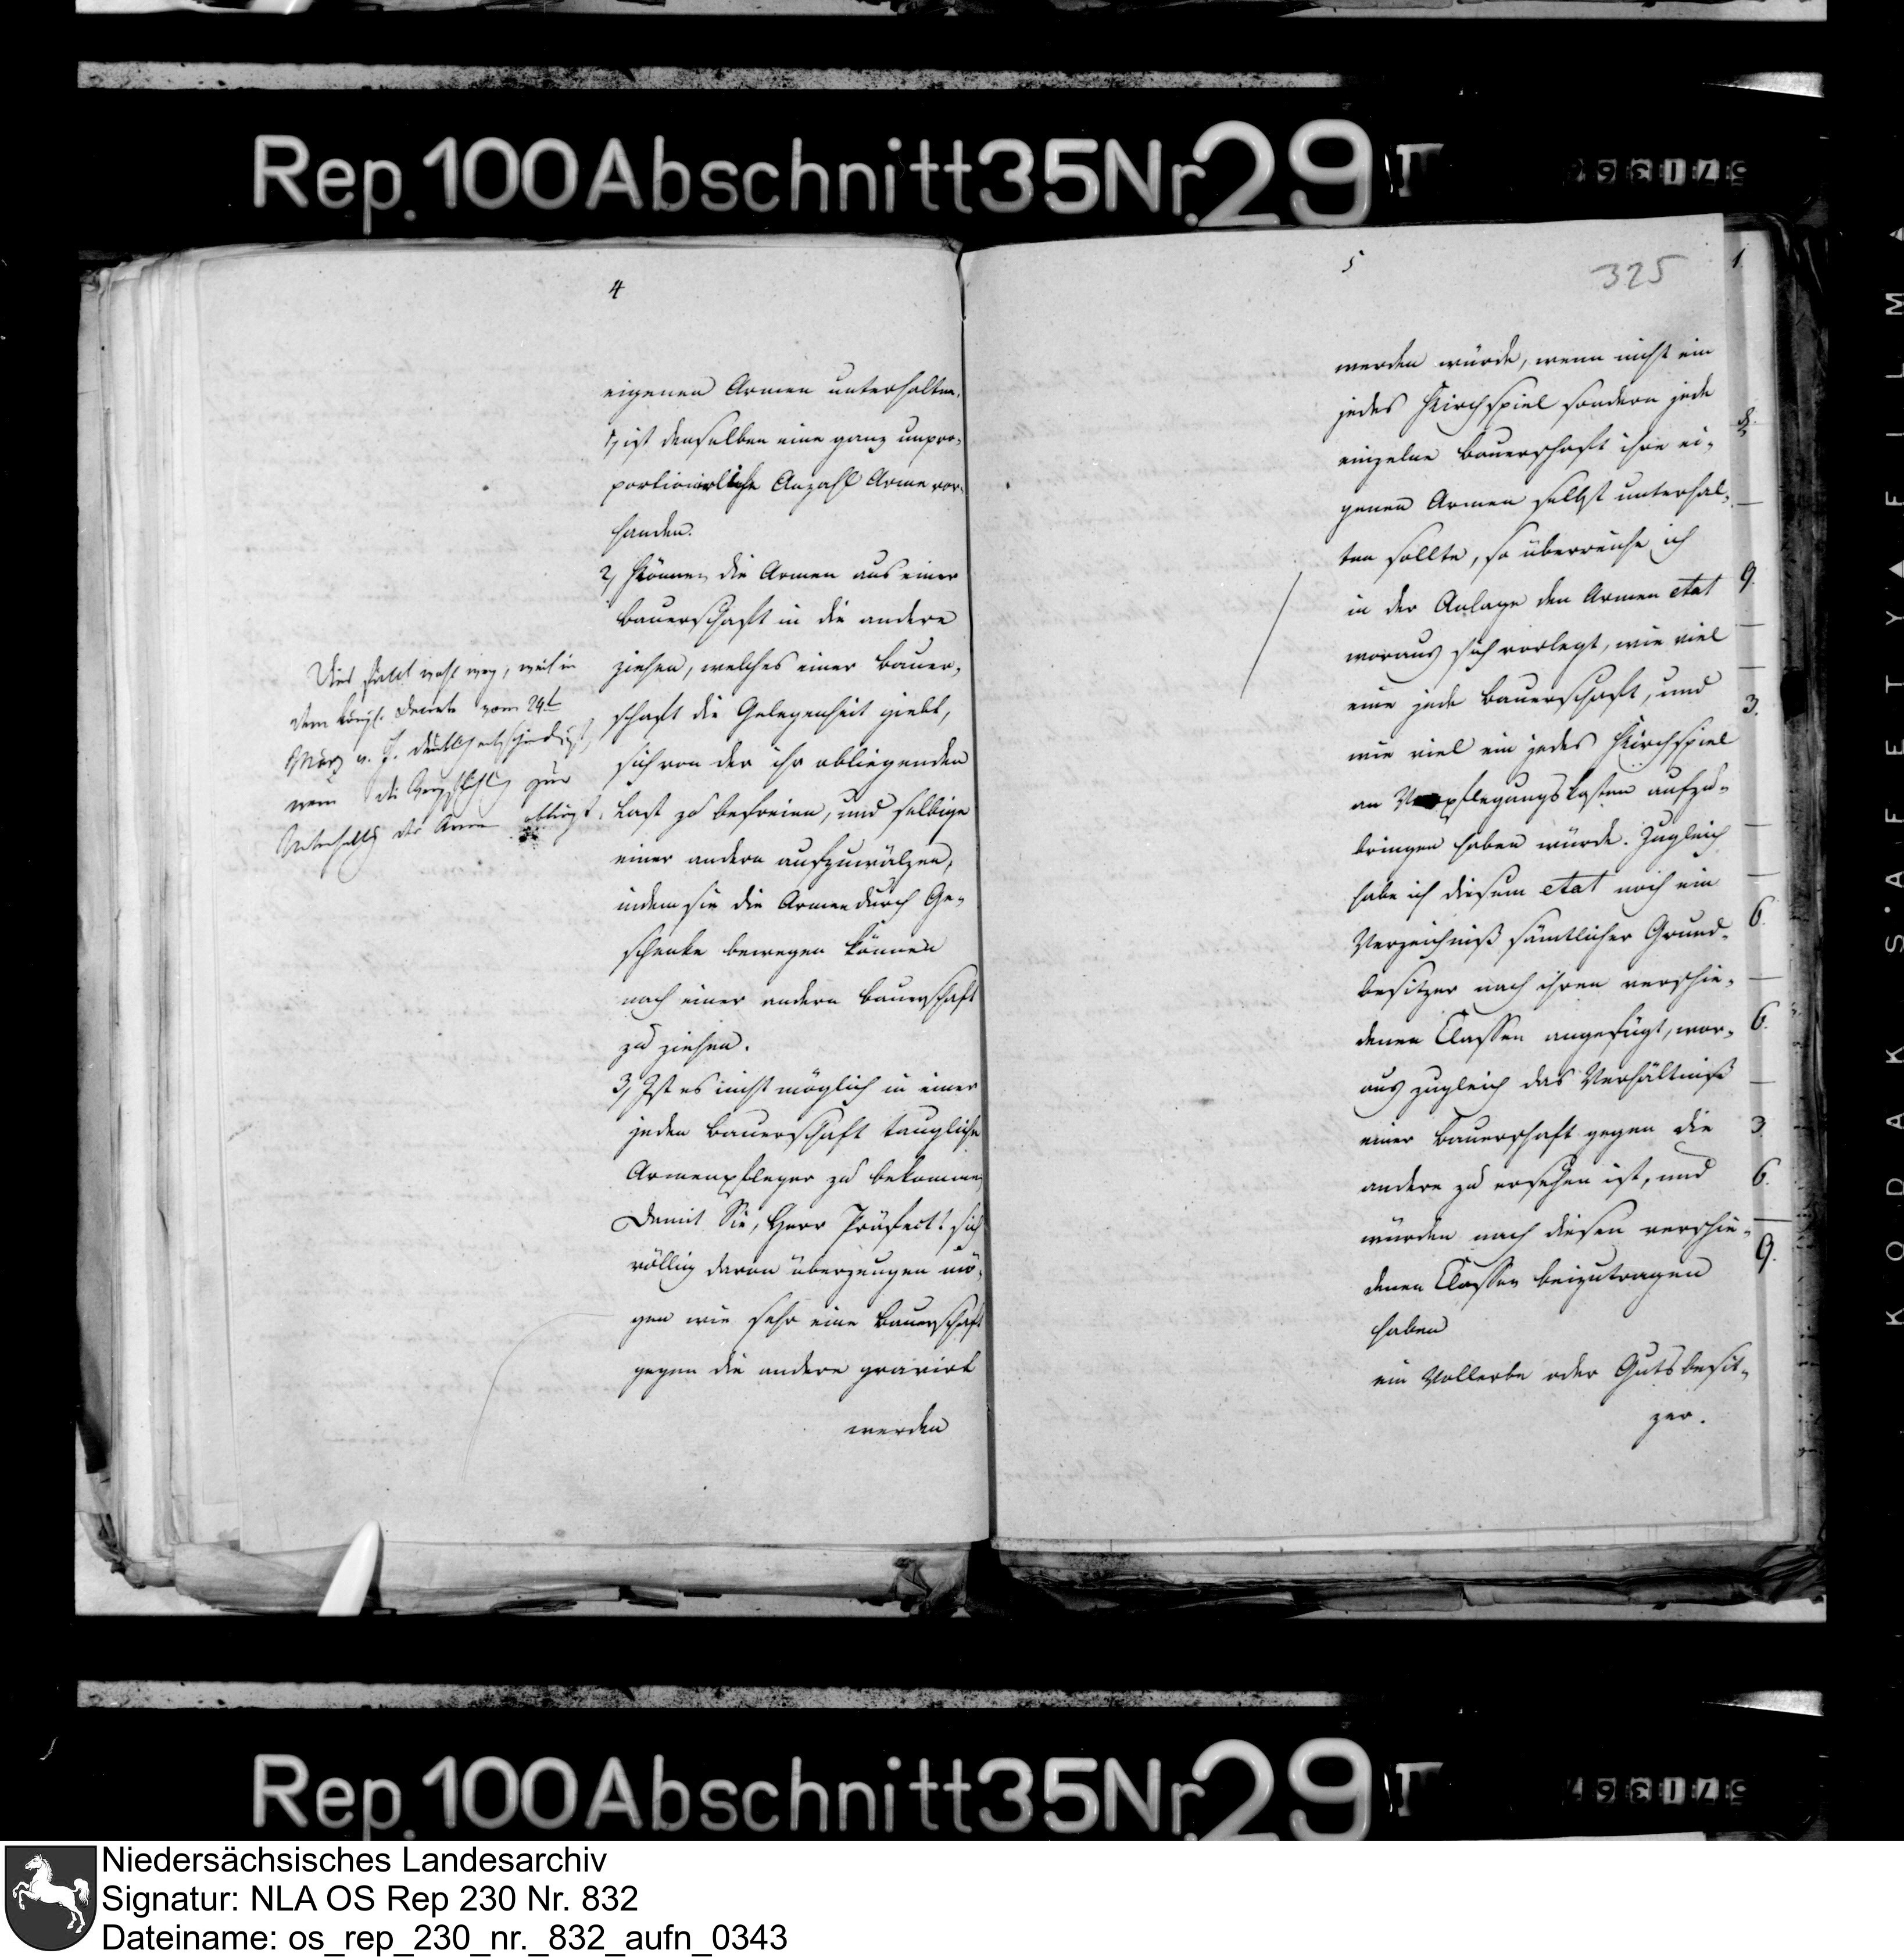 Rep. 100 Abschnitt 35 Nr. 29 I
57136
4
eigenen Armen unterhalten,
1, ist denselben eine ganz unpro-
portionirliche Anzahl Arme vor-
handen.
2, Können die Armen aus einer
Bauerschaft in die andere
ziehen, welches einer Bauer-
schaft die Gelegenheit giebt,
sich von der ihr obliegenden
Last zu befreien, und selbige
einer andern aufzuwälzen,
indem sie die Armen durch Ge-
schenke bewegen können
nach einer andern Bauerschaft
zu ziehen.
3, Ist es nicht möglich in einer
jeden Bauerschaft taugliche
Armenpfleger zu bekommen
Damit Sie, Herr Präfect! sich
völlig davon überzeugen mö-
gen wie sehr eine Bauerschaft
gegen die andere gravirt
werden
Dies fällt wohl weg, weil in
dem königl. Decrete vom 24t
März v. J. deutlich entschieden ist,
wem die Verpflichtg zur
Unterhaltg der Armen obliegt.
5
325
werden würde, wenn nicht ein
jedes Kirchspiel sondern jede
einzelne Bauerschaft ihre ei-
genen Armen selbst unterhal-
ten sollte, so überreiche ich
in der Anlage den Armen etat
woraus sich vorlegt, wie viel
eine jede Bauerschaft, und
wie viel ein jedes Kirchspiel
an Verpflegungskosten aufzu-
bringen haben würde. Zugleich
habe ich diesem etat noch ein
Verzeichniß sämtlicher Grund-
besitzer nach ihren verschie-
denen Classen angefügt, wor-
aus zugleich das Verhältniß
einer Bauerschaft gegen die
andere zu ersehen ist, und
würden nach diesen verschie-
denen Classen beizutragen
haben
ein Vollerbe oder Gutsbesit-
zer.
1
8.
9.
3.
6.
6.
3
6.
9.
KODAK S·A·F·E·T·Y FILM
Rep. 100 Abschnitt 35 Nr. 29 I
57136
Niedersächsisches Landesarchiv
Signatur: NLA OS Rep 230 Nr. 832
Dateiname: os_rep_230_nr._832_aufn_0343